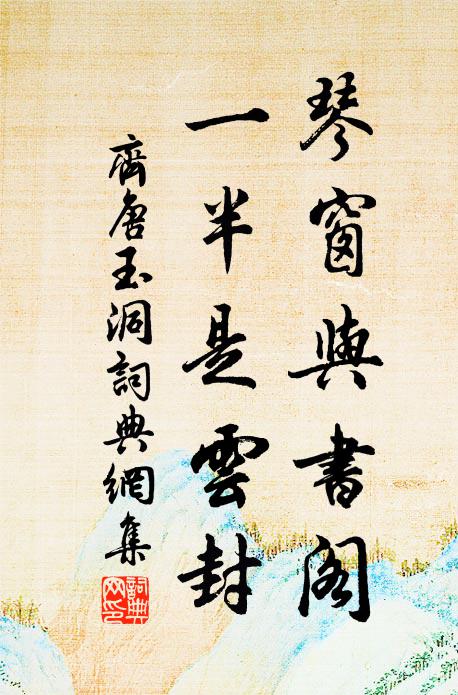 琴窗與書閣
一半是雲封
齊唐玉洞詞典網集
詞典網印